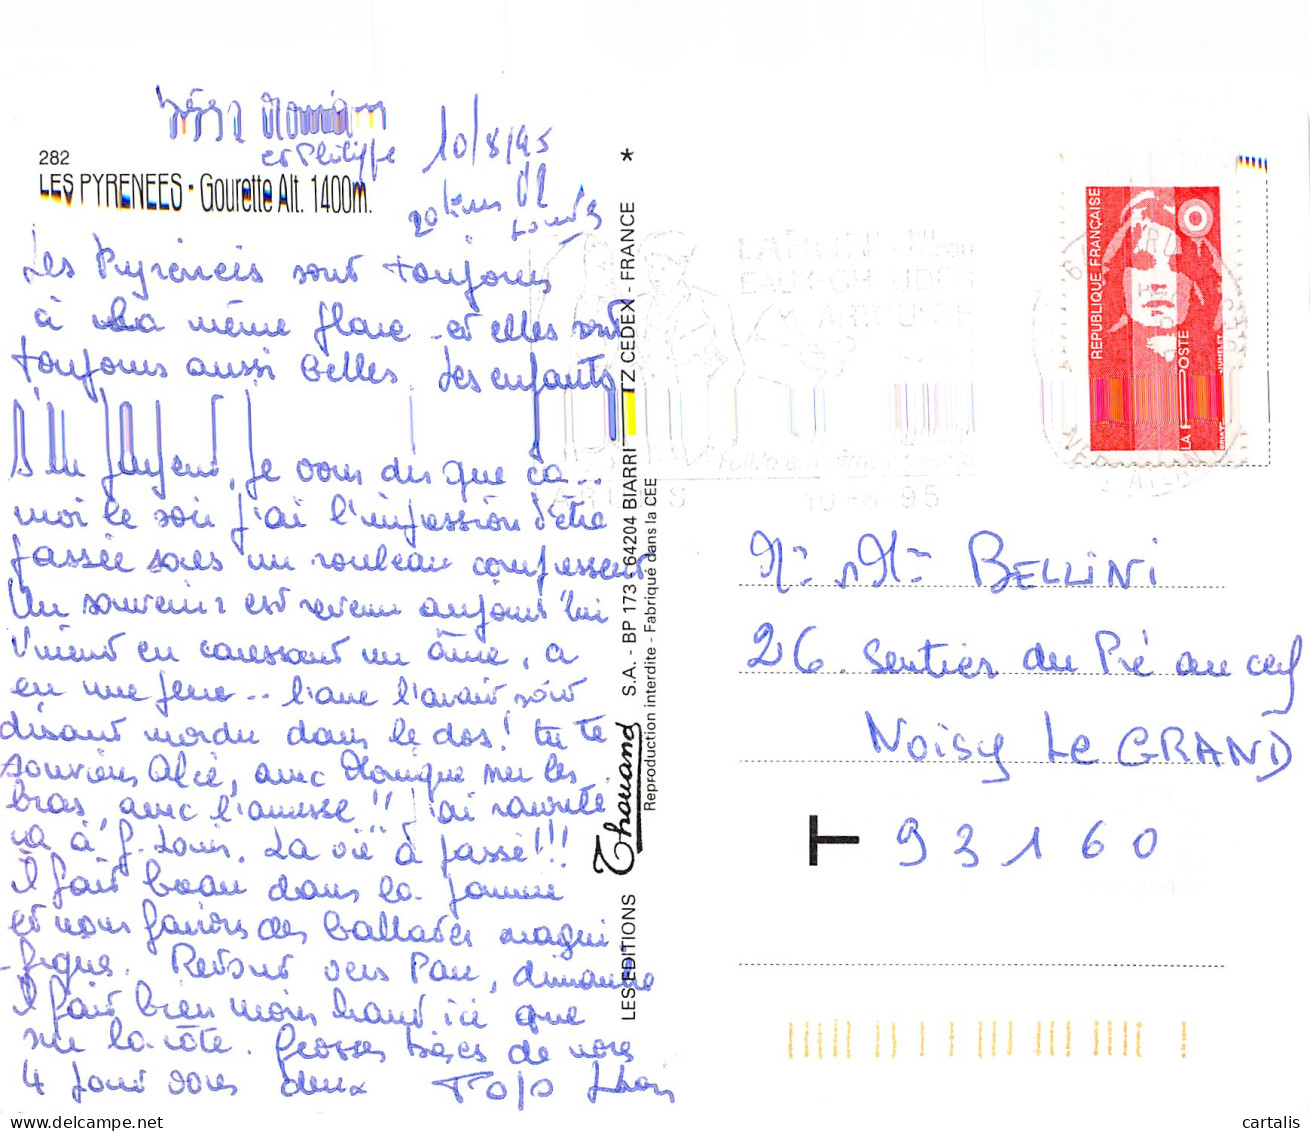 et Philippe
10/8/95
282
LES PYRENEES - Gourette Alt. 1400m.
Les Pyrénées sont toujours
à la même place et elles sont
toujours aussi belles. Les enfants
je vous dis que ça...
moi le soir j'ai l'impression d'être
passée sous un rouleau compresseur
Un souvenir est revenu aujourd'hui
Vincent en caressant un âne, a
eu une peur... l'ane l'avait, soit
disant mordu dans le dos! tu te
souviens Alice, avec Monique sur les
bras, avec l'anesse!! j'ai raconté
ça à J. Louis. La vie a passé!!!
Il fait beau dans la journée
et nous faisons des ballades magni
-fiques. Retour vers Pau, dimanche
Il fait bien moins chaud ici que
sur la côte. Grosses bises de nous
4 pour vous deux
LES EDITIONS Thouand S.A. - BP 173 - 64204 BIARRITZ CEDEX - FRANCE *
Reproduction interdite - Fabriqué dans la CEE
REPUBLIQUE FRANÇAISE
LA POSTE
10-8-95
Mr et Mme BELLINI
26. Sentier du Pré au cerf
NOISY LE GRAND
T 93160
cartalis.delcampe.net